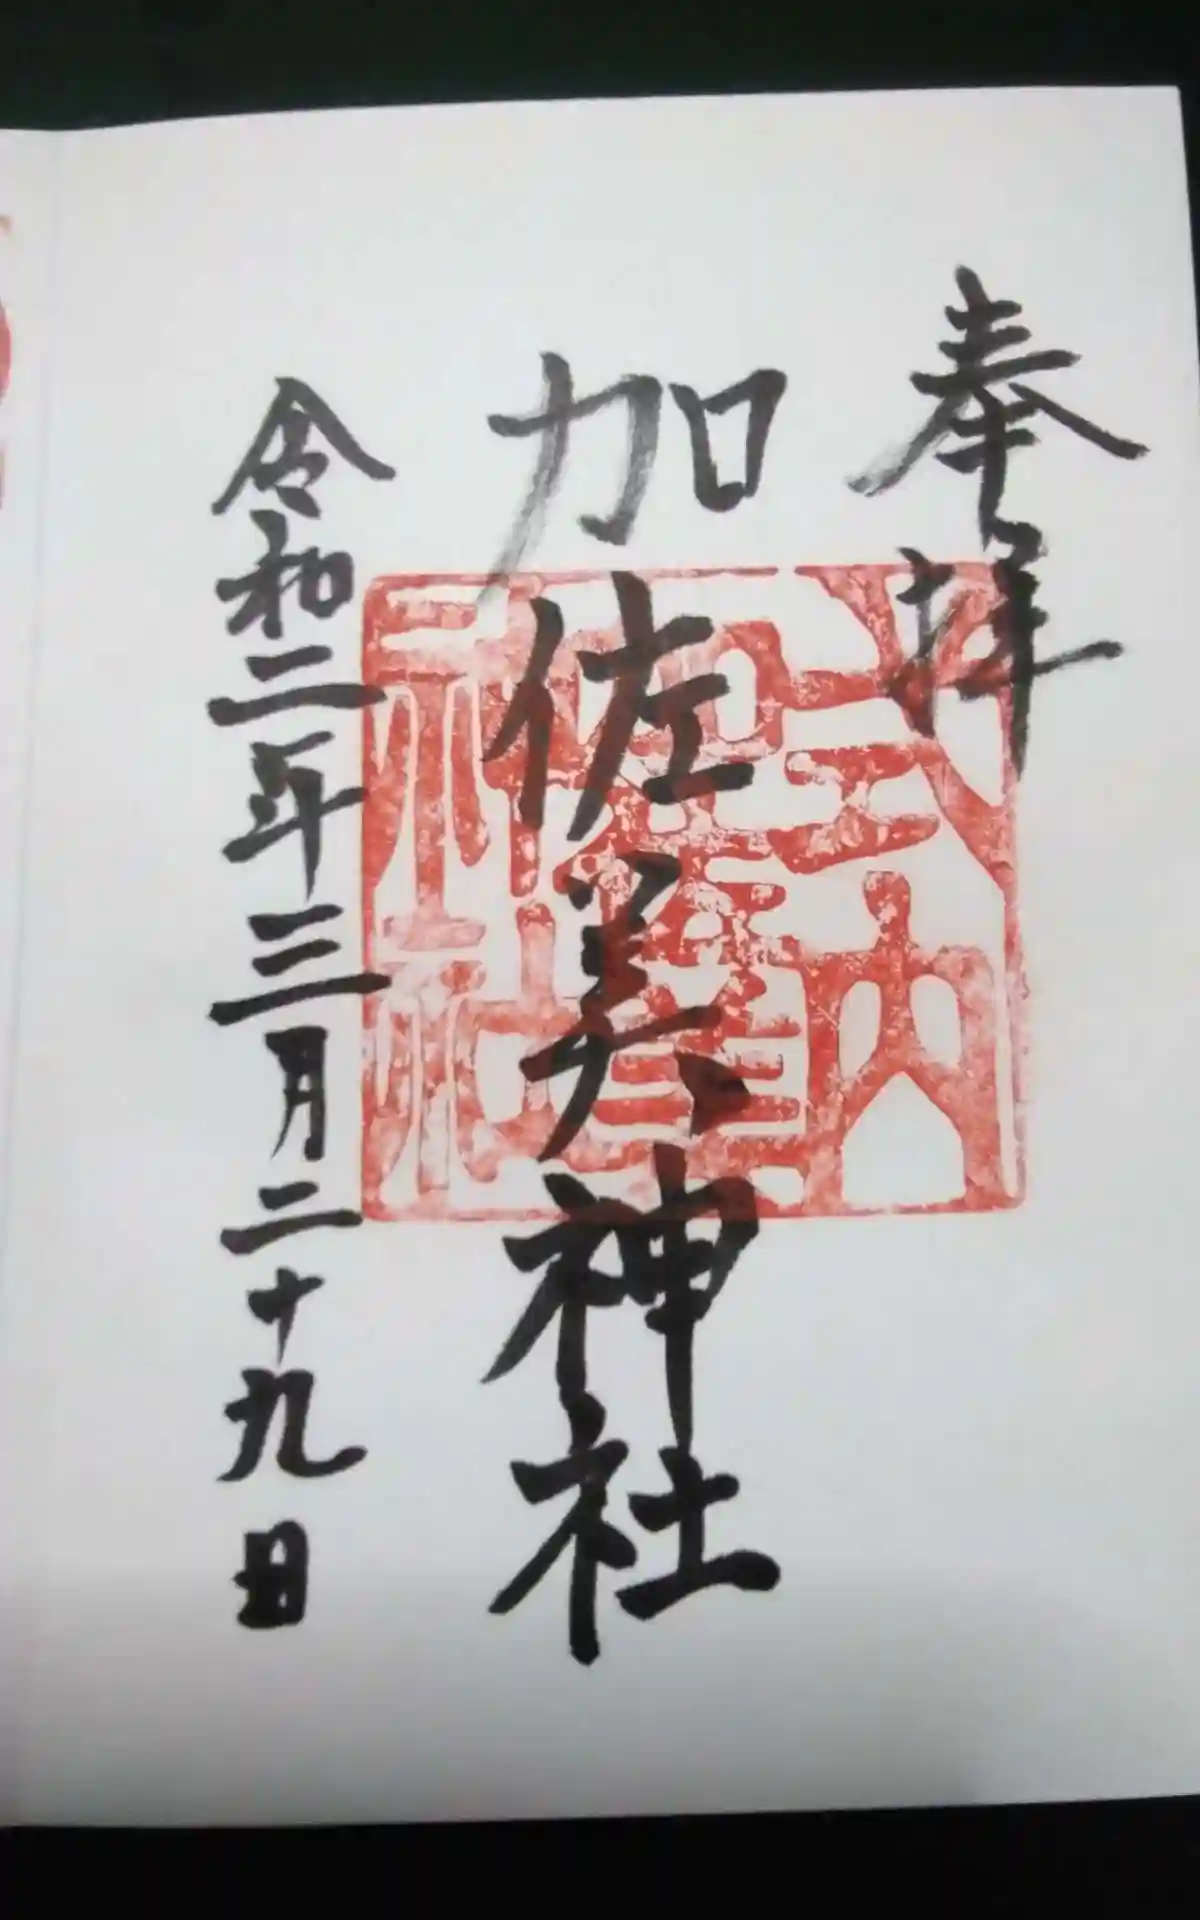 奉拝
加佐美神社
令和二年三月二十九日
式内
加佐美
神社